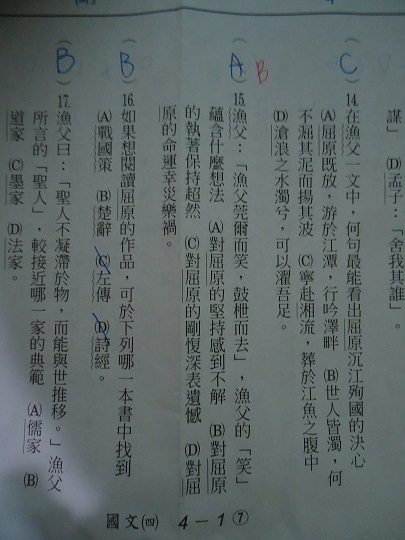 謀」 (D)孟子：「舍我其誰」。
(C) 14. 在漁父一文中，何句最能看出屈原沉江殉國的決心
(A)屈原既放，游於江潭，行吟澤畔 (B)世人皆濁，何
不淈其泥而揚其波 (C)寧赴湘流，葬於江魚之腹中
(D)滄浪之水濁兮，可以濯吾足。
(A) B 15. 漁父：「漁父莞爾而笑，鼓枻而去」，漁父的「笑」
蘊含什麼想法 (A)對屈原的堅持感到不解 (B)對屈原
的執著保持超然 (C)對屈原的剛愎深表遺憾 (D)對屈
原的命運幸災樂禍。
(B) 16. 如果想閱讀屈原的作品，可於下列哪一本書中找到
(A)戰國策 (B)楚辭 (C)左傳 (D)詩經。
(B) 17. 漁父曰：「聖人不凝滯於物，而能與世推移。」漁父
所言的「聖人」，較接近哪一家的典範 (A)儒家 (B)
道家 (C)墨家 (D)法家。
國文(四) 4－1 ⑦